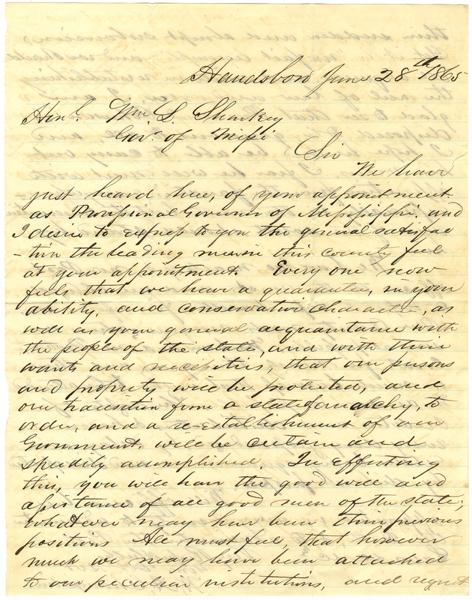 Handsboro June 28th 1865
Honl. Wm L. Sharkey
Govr. of Missi
Sir
We have
just heard here, of your appointment
as Provisional Governor of Mississippi, and
I desire to express to you the general satisfac
-tion the leading men in this county feel
at your appointment. Every one now
feels that we have a guarantee, in your
ability, and conservative character, as
well as your general acquaintance with
the people of the state, and with their
wants and necessities, that our persons
and property will be protected, and
our transition from a state of anarchy, to
order, and a re-establishment of our
Government will be certain and
speedily accomplished. In effecting
this, you will have the good will and
assistance of all good men of the state,
whatever may have been their previous
positions All must feel, that however
much we may have been attached
to our peculiar institutions, and regret